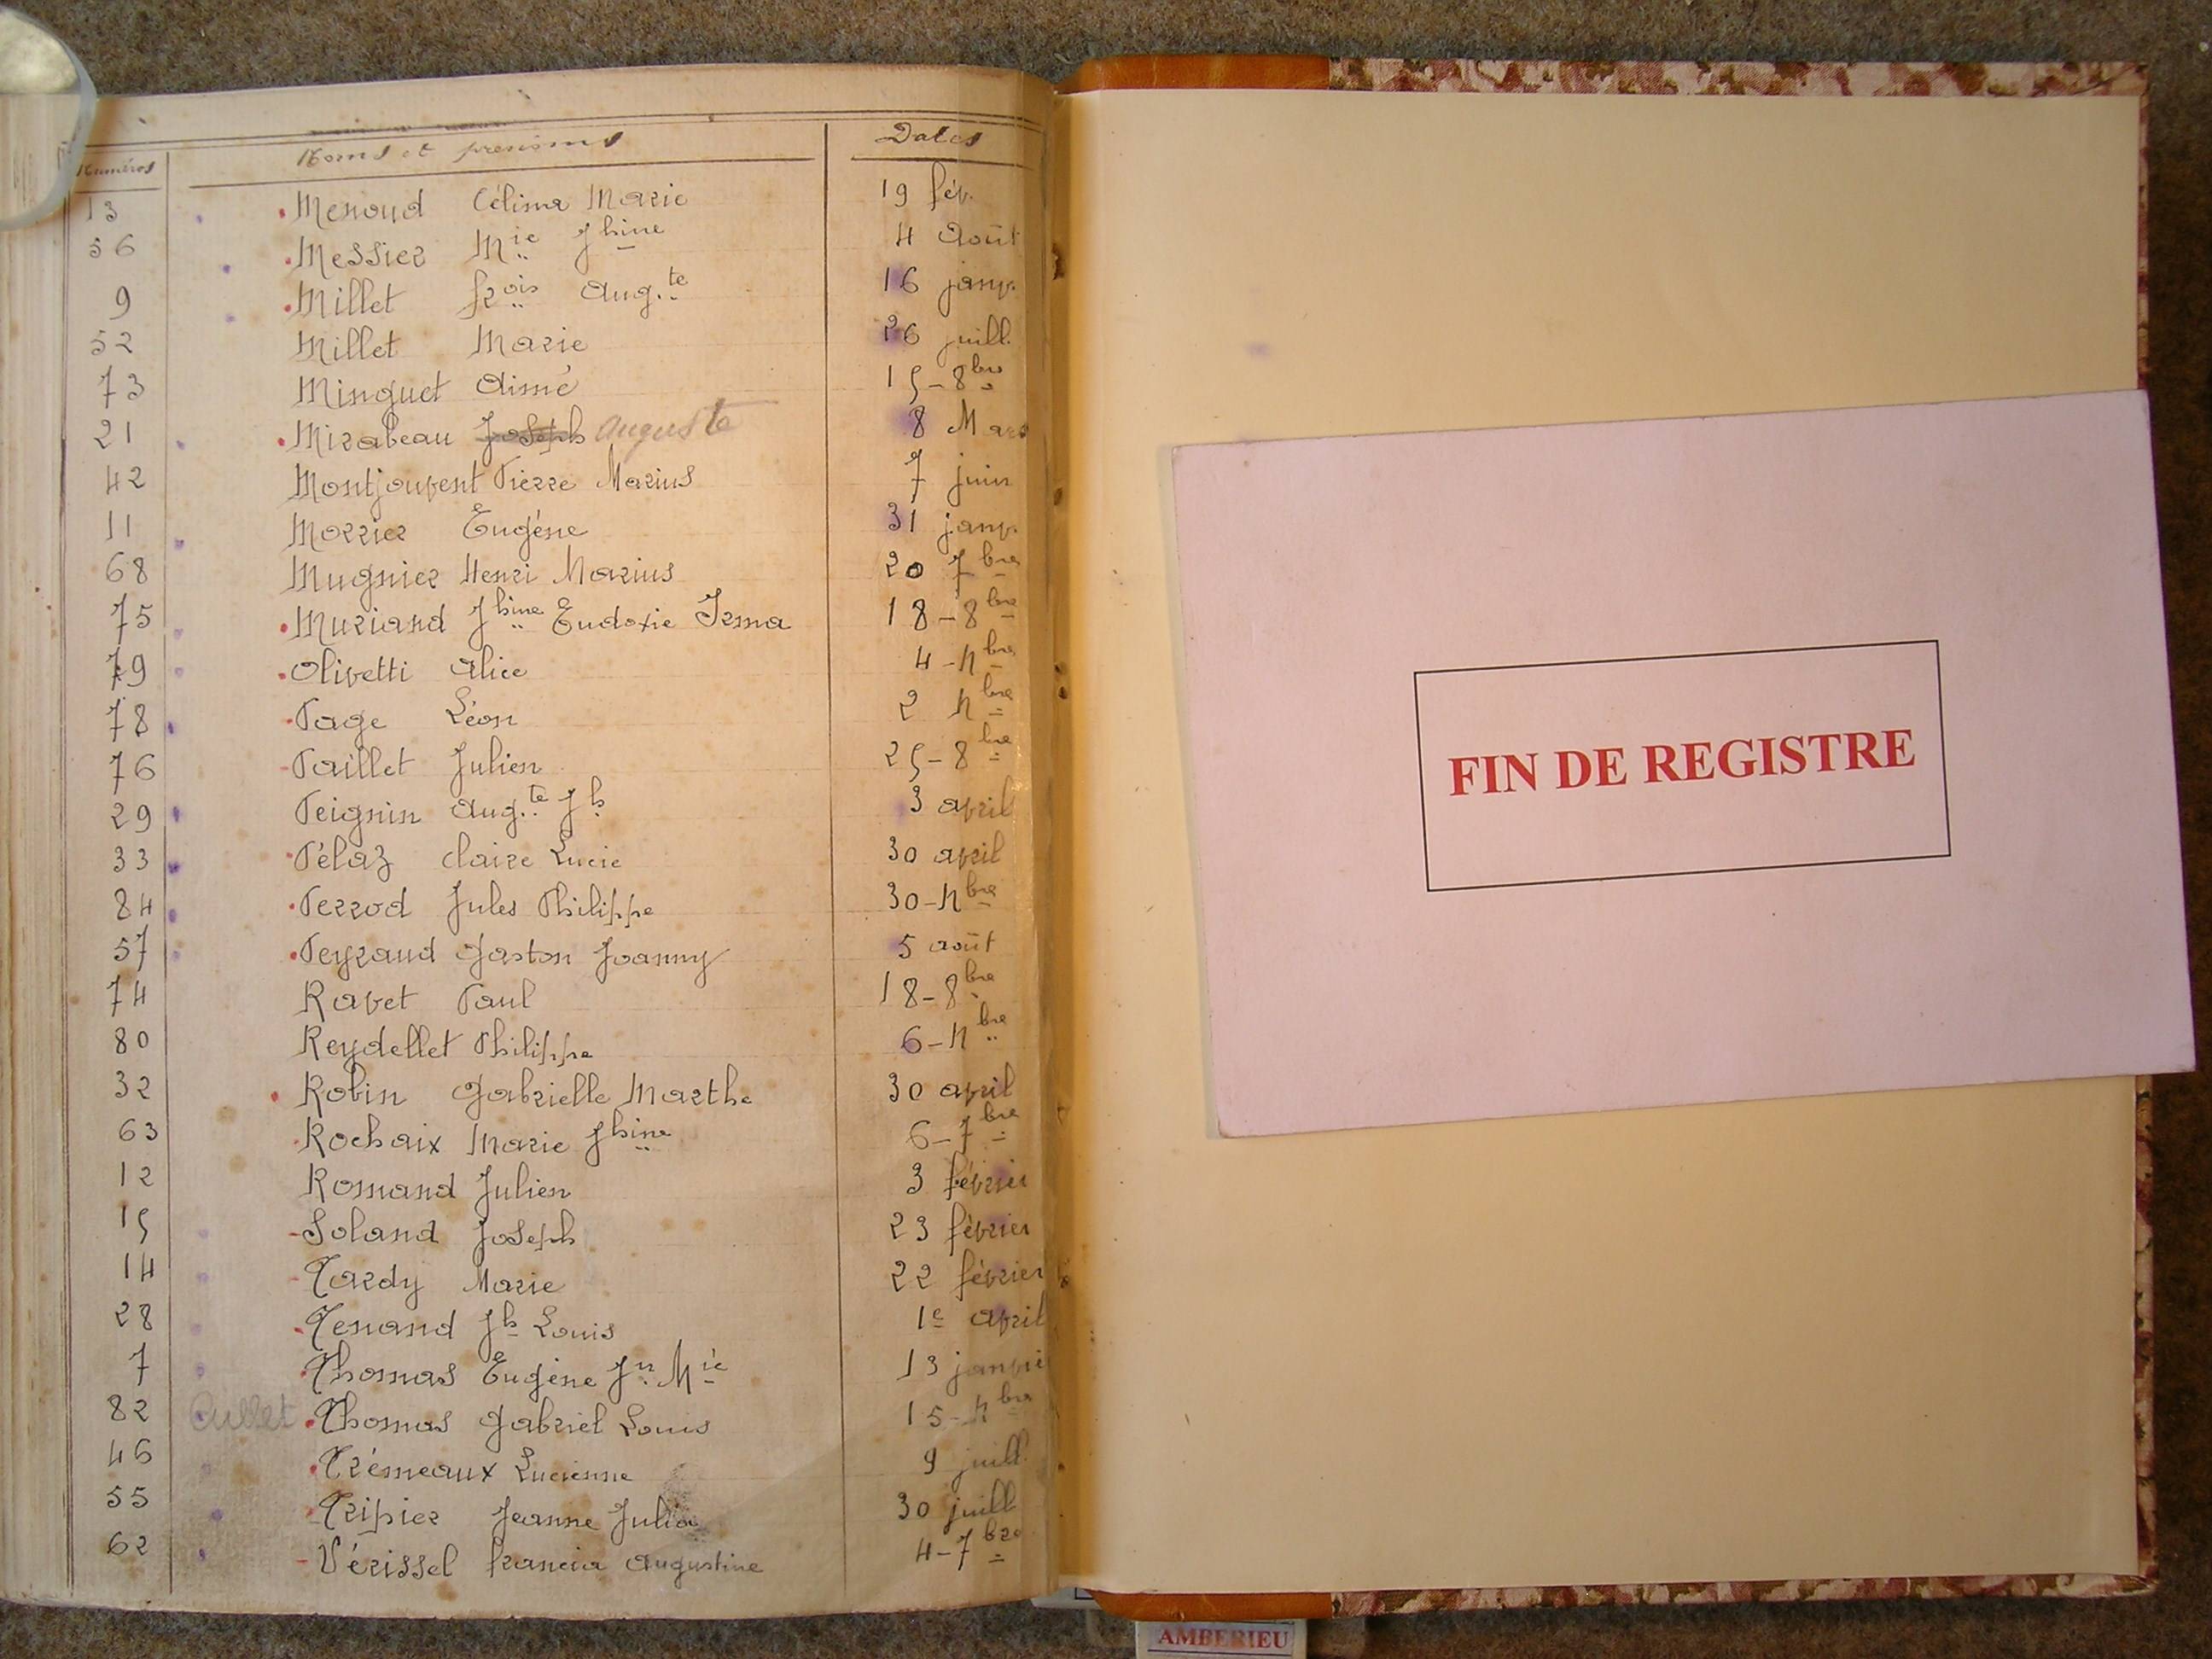 Numéros Noms et prénoms Dates
13 Menoud Célima Marie 19 fév.
56 Messier Mie Jhine 4 Août
9 Millet frois Aug.te 16 janv.
52 Millet Marie 26 juill.
73 Minguet Aimé 15-8bre
21 Mirabeau Joseph Auguste 8 Mars
42 Montjouvent Pierre Marius 7 juin
11 Morrier Eugène 31 janv.
68 Mugnier Henri Marius 20 7bre
75 Muriand Jhine Eudoxie Irma 18-8bre
79 Olivetti Alice 4-Nbre
78 Page Léon 2 Nbre
76 Paillet Julien 25-8bre
29 Peignin Aug.te Jh 3 avril
33 Pélaz Claire Lucie 30 avril
84 Perrod Jules Philippe 30-Nbre
57 Peyraud Gaston Joanny 5 août
74 Ravet Paul 18-8bre
80 Reydellet Philippe 6-Nbre
32 Robin Gabrielle Marthe 30 avril
63 Rochaix Marie Jhine 6-7bre
12 Romand Julien 3 février
15 Soland Joseph 23 février
14 Tardy Marie 22 février
28 Tenand Jh Louis 1e avril
7 Thomas Eugène Jn Mie 13 janvie
82 Thomas Gabriel Louis 15-Nbre
46 Trémeaux Lucienne 9 juill.
55 Tripier Jeanne Julia 30 juill
62 Vérissel francia Augustine 4-7bre
FIN DE REGISTRE
AMBERIEU